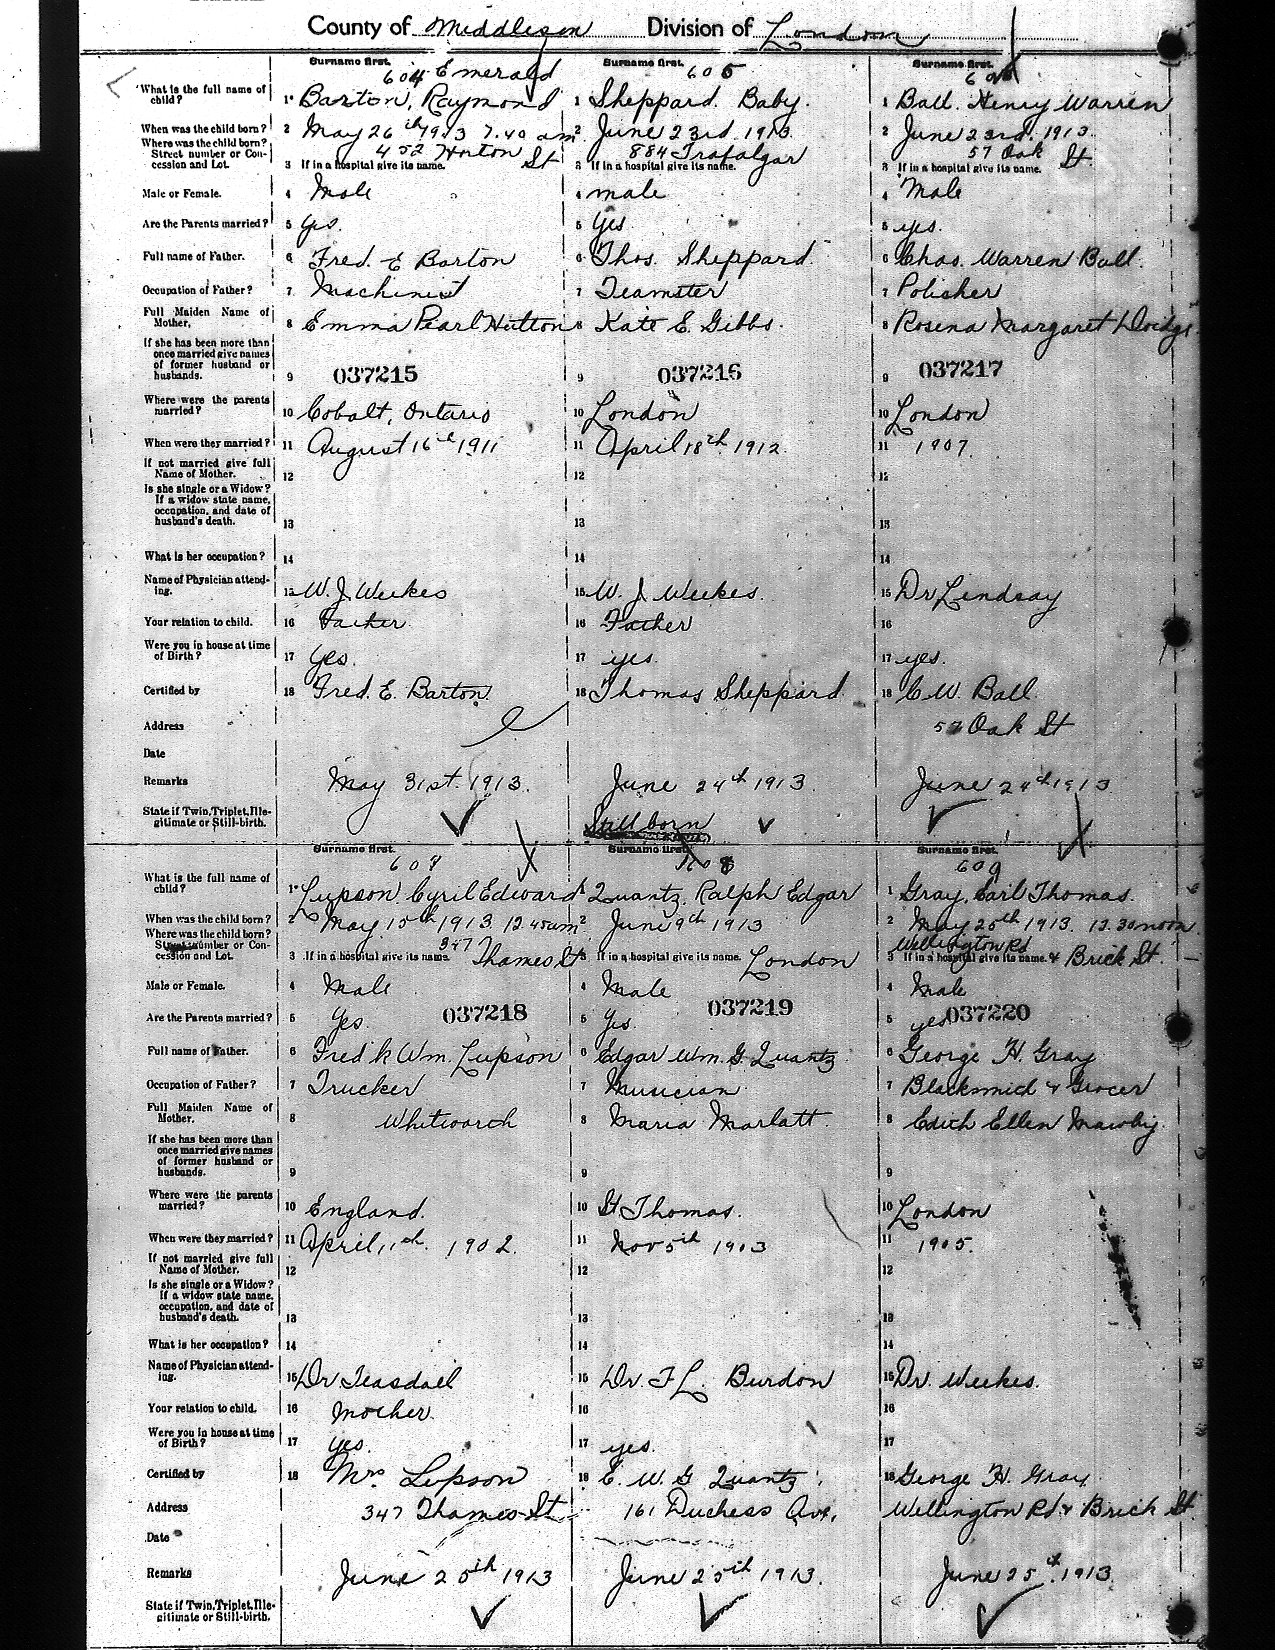 County of Middlesex Division of London
Surname first. Surname first. Surname first.
604 Emerald 605 606
What is the full name of child? 1 Barton, Raymond 1 Sheppard. Baby. 1 Ball. Henry Warren
When was the child born? 2 May 26th 1913 7.40 am 2 June 23rd. 1913. 2 June 23rd. 1913.
Where was the child born? Street number or Concession and Lot. 452 Horton St 884 Trafalgar 57 Oak St.
3 If in a hospital give its name. 3 If in a hospital give its name. 3 If in a hospital give its name.
Male or Female. 4 Male 4 male 4 Male
Are the Parents married? 5 yes. 5 yes 5 yes.
Full name of Father. 6 Fred. E Barton 6 Thos. Sheppard. 6 Chas. Warren Ball.
Occupation of Father? 7 Machinist 7 Teamster 7 Polisher
Full Maiden Name of Mother. 8 Emma Pearl Hutton 8 Kate E. Gibbs. 8 Rosena Margaret Dodge
If she has been more than once married give names of former husband or husbands. 9 037215 9 037216 9 037217
Where were the parents married? 10 Cobalt, Ontario 10 London 10 London
When were they married? 11 August 16th 1911 11 April 18th 1912. 11 1907.
If not married give full Name of Mother. 12 12 12
Is she single or a Widow? If a widow state name, occupation, and date of husband's death. 13 13 13
What is her occupation? 14 14 14
Name of Physician attending. 15 W. J. Weekes 15 W. J. Weekes. 15 Dr Lindsay
Your relation to child. 16 Father. 16 Father 16
Were you in house at time of Birth? 17 yes. 17 yes. 17 yes.
Certified by 18 Fred. E. Barton 18 Thomas Sheppard 18 C. W. Ball.
Address 57 Oak St
Date
Remarks May 31st. 1913. June 24th 1913. June 24th 1913
State if Twin, Triplet, Illegitimate or Still-birth. Still born
Surname first. Surname first. Surname first.
607 608 609
What is the full name of child? 1 Lupson Cyril Edward 1 Quantz, Ralph Edgar 1 Gray, Earl Thomas.
When was the child born? 2 May 15th 1913. 12.45am 2 June 9th 1913 2 May 25th 1913. 12.30 noon
Where was the child born? Street number or Concession and Lot. 347 Wellington Rd
3 If in a hospital give its name. Thames St 3 If in a hospital give its name. London 3 If in a hospital give its name. & Brick St.
Male or Female. 4 Male 4 Male 4 Male
Are the Parents married? 5 Yes. 037218 5 Yes. 037219 5 yes 037220
Full name of Father. 6 Fredk Wm. Lupson 6 Edgar Wm. G. Quantz 6 George H. Gray
Occupation of Father? 7 Trucker 7 Musician 7 Blacksmith & Grocer
Full Maiden Name of Mother. 8 Whitworth 8 Maria Marlatt. 8 Edith Ellen Mawby.
If she has been more than once married give names of former husband or husbands. 9 9 9
Where were the parents married? 10 England. 10 St Thomas. 10 London
When were they married? 11 April, 11th. 1902. 11 Nov 5th 1903 11 1905.
If not married give full Name of Mother. 12 12 12
Is she single or a Widow? If a widow state name, occupation, and date of husband's death. 13 13 13
What is her occupation? 14 14 14
Name of Physician attending. 15 Dr Teasdall 15 Dr. F L. Burdon 15 Dr. Weekes.
Your relation to child. 16 Mother. 16 16
Were you in house at time of Birth? 17 yes. 17 yes. 17
Certified by 18 Mrs Lupson 18 E. W. G. Quantz. 18 George H. Gray
Address 347 Thames St 161 Duchess Ave. Wellington Rd & Brick St.
Date
Remarks June 25th 1913 June 25th 1913. June 25th. 1913
State if Twin, Triplet, Illegitimate or Still-birth.